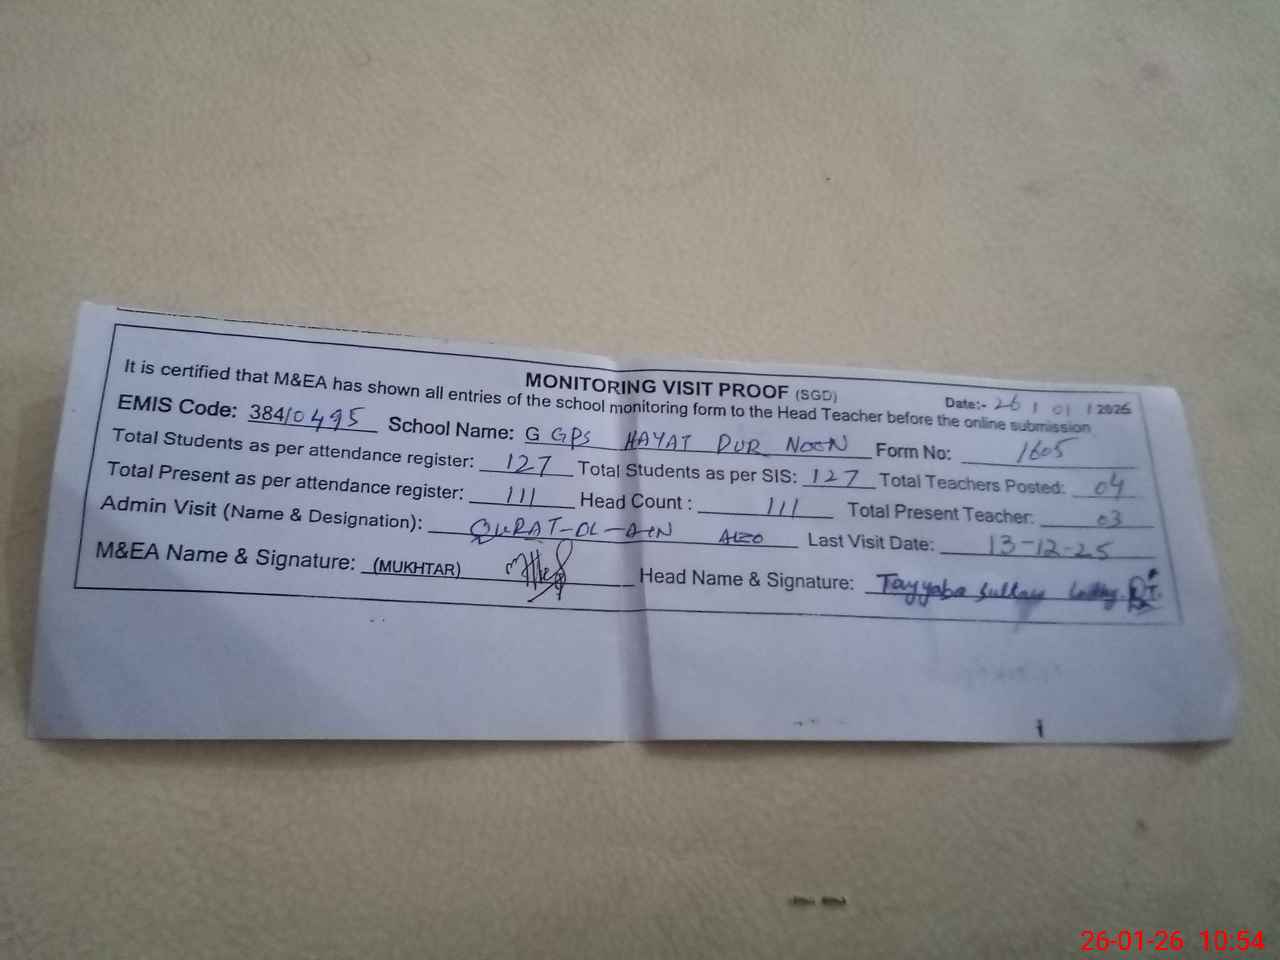 MONITORING VISIT PROOF (SGD)
Date:- 26 / 01 / 2026
It is certified that M&EA has shown all entries of the school monitoring form to the Head Teacher before the online submission
EMIS Code: 38410495 School Name: GGPS HAYAT PUR NOON Form No: 1605
Total Students as per attendance register: 127 Total Students as per SIS: 127 Total Teachers Posted: 04
Total Present as per attendance register: 111 Head Count : 111 Total Present Teacher: 03
Admin Visit (Name & Designation): QURAT-UL-AIN AEO Last Visit Date: 13-12-25
M&EA Name & Signature: (MUKHTAR) Head Name & Signature: Tayyaba Sultan
26-01-26 10:54